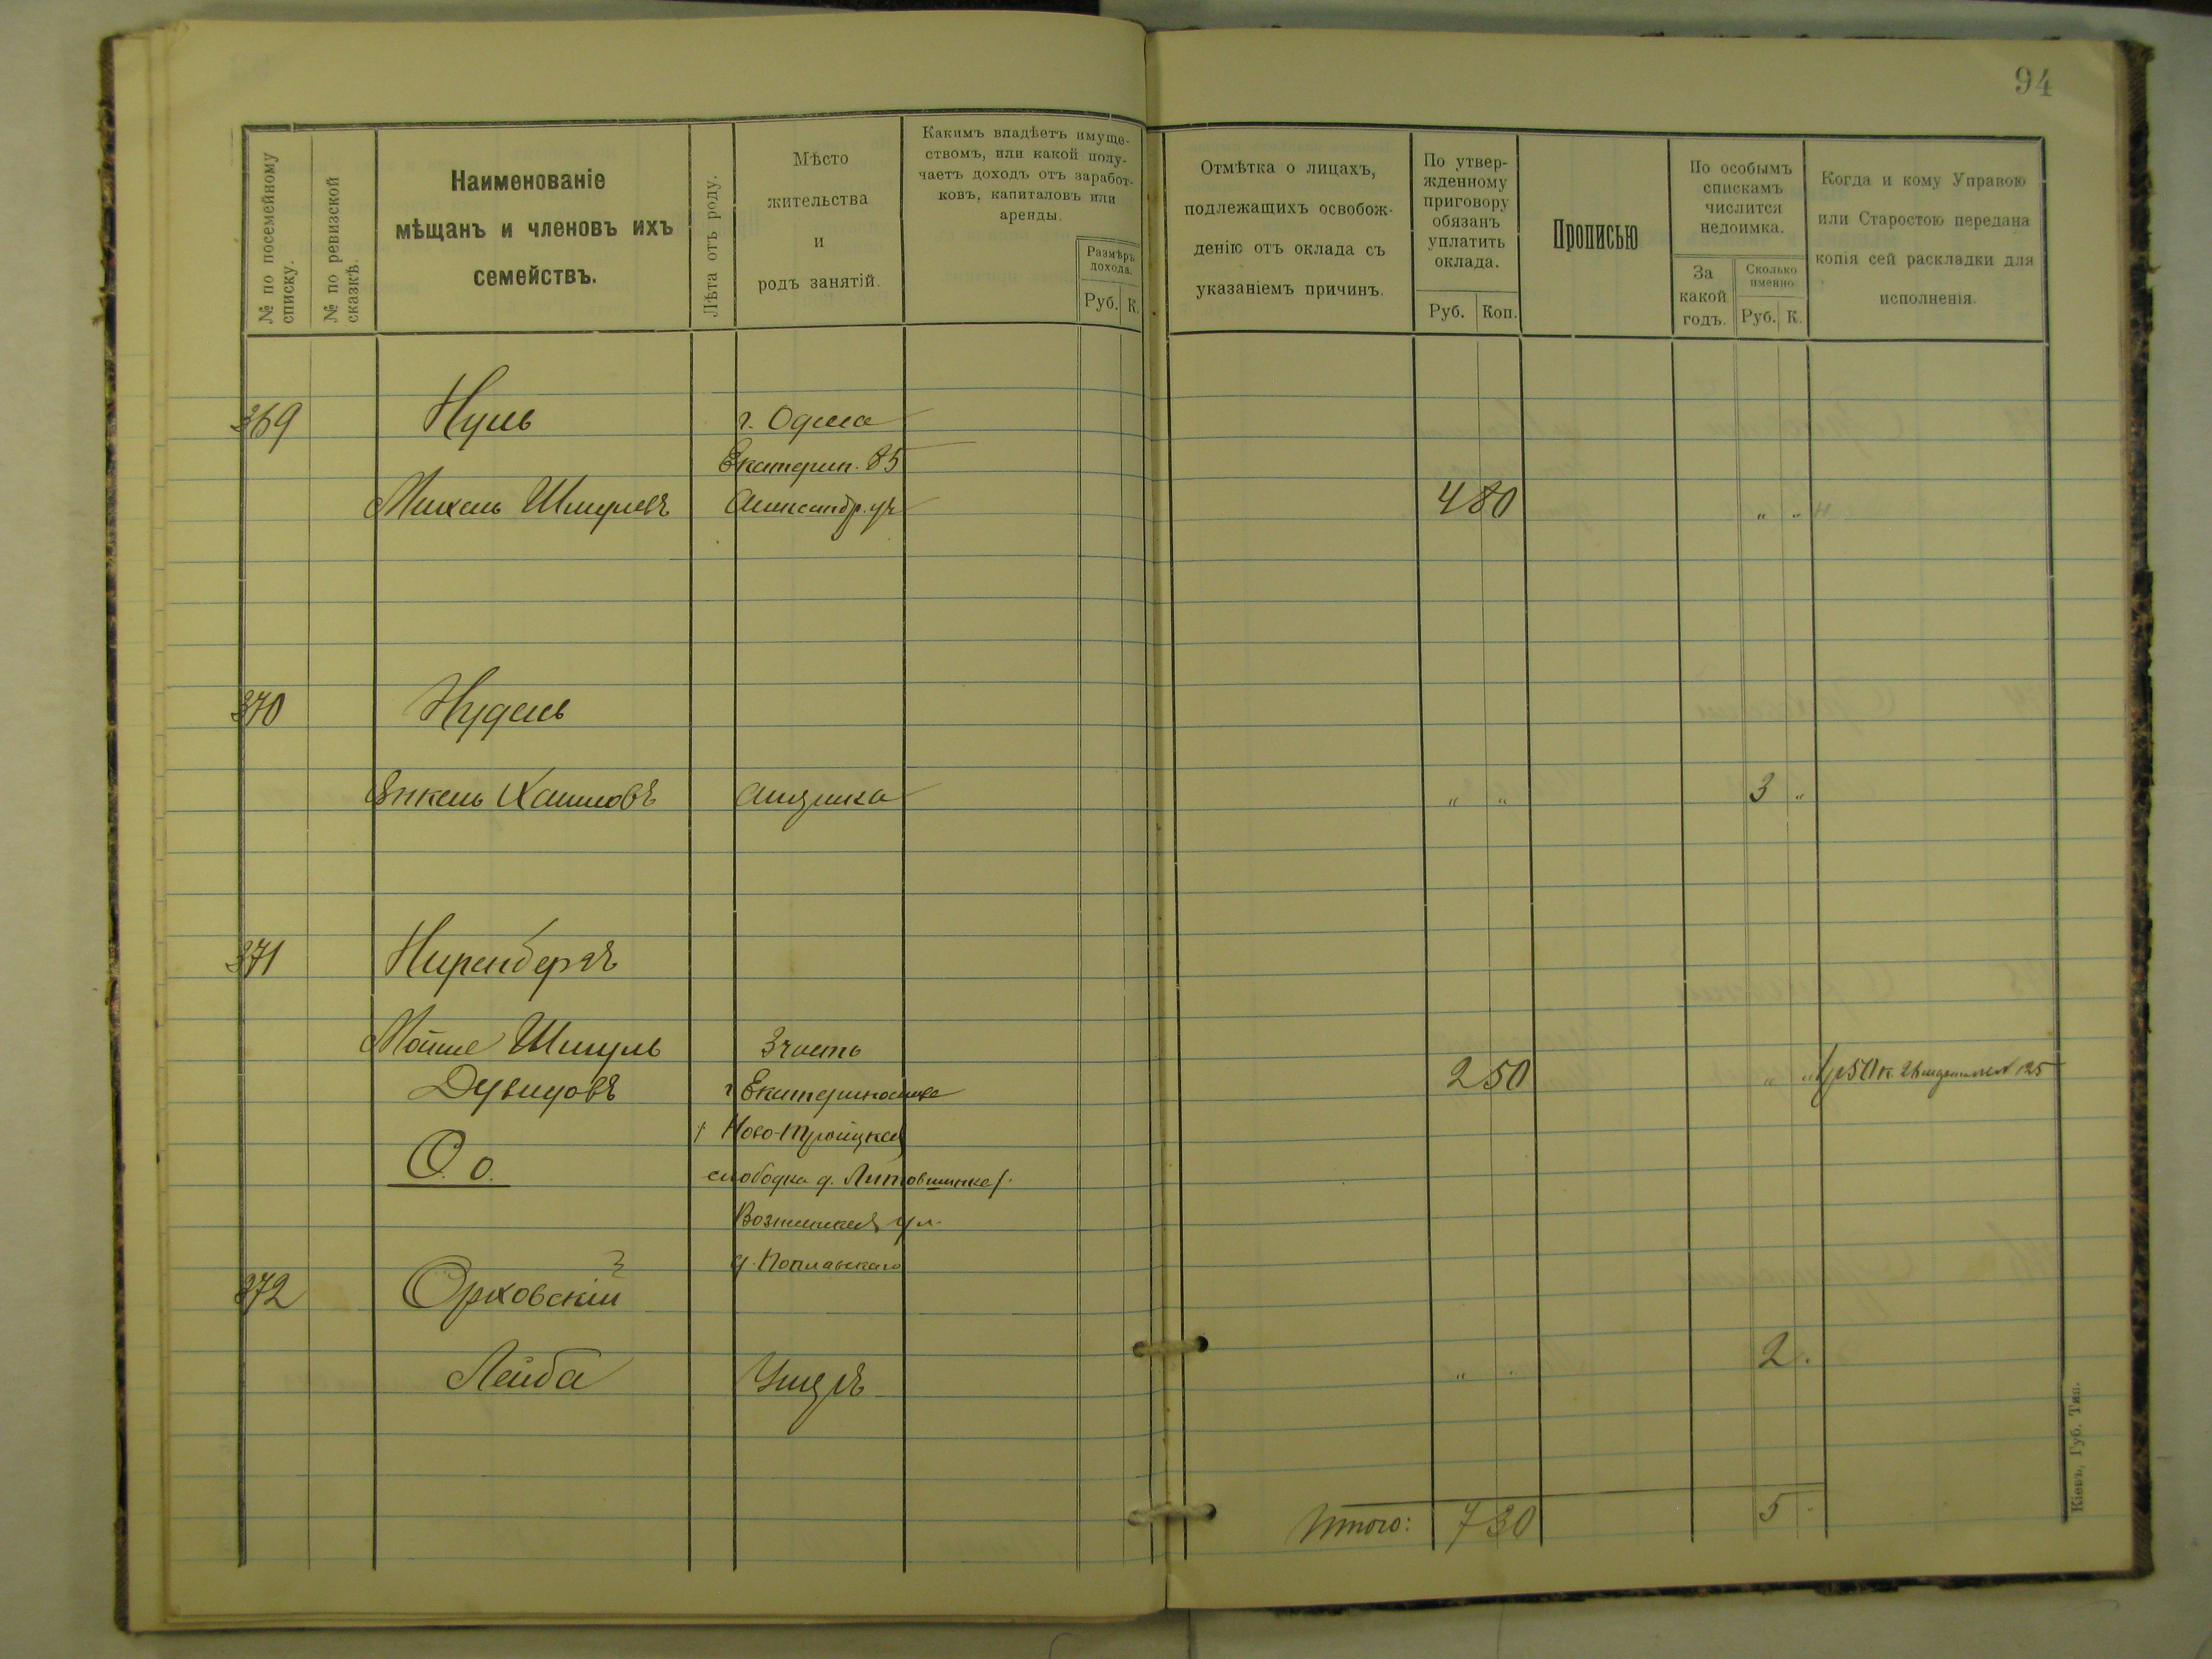 94
№ по посемейному списку.
№ по ревизской сказкѣ.
Наименованіе
мѣщанъ и членовъ ихъ
семействъ.
Лѣта отъ роду.
Мѣсто
жительства
и
родъ занятій.
Какимъ владѣетъ имуще-
ствомъ, или какой полу-
чаетъ доходъ отъ заработ-
ковъ, капиталовъ или
аренды.
Размѣръ
дохода.
Руб. К.
Отмѣтка о лицахъ,
подлежащихъ освобож-
денію отъ оклада съ
указаніемъ причинъ.
По утвер-
жденному
приговору
обязанъ
уплатить
оклада.
Руб. Коп.
Прописью
По особымъ
спискамъ
числится
недоимка.
За
какой
годъ.
Сколько
именно
Руб. К.
Когда и кому Управою
или Старостою передана
копія сей раскладки для
исполненія.
369 Нуль г. Одесса
Екатерин. 85
Михель Шмулевъ Александр. уч 4 80 " "
370 Нудель
Янкель Хаимовъ Америка " " 3 "
371 Ниренбергъ
Мойше Шмуль 3 часть
Дувидовъ г Екатеринослав 2 50 " " 1 р 50 к. 125
Ново-Троицкая
О. о. слободка д. Литовшинка
ул.
д. Поплавскаго
372 Орховскій
Лейба Умеръ " " 2 .
Итого: 7 30 5 "
Кіевъ, Губ. Тип.